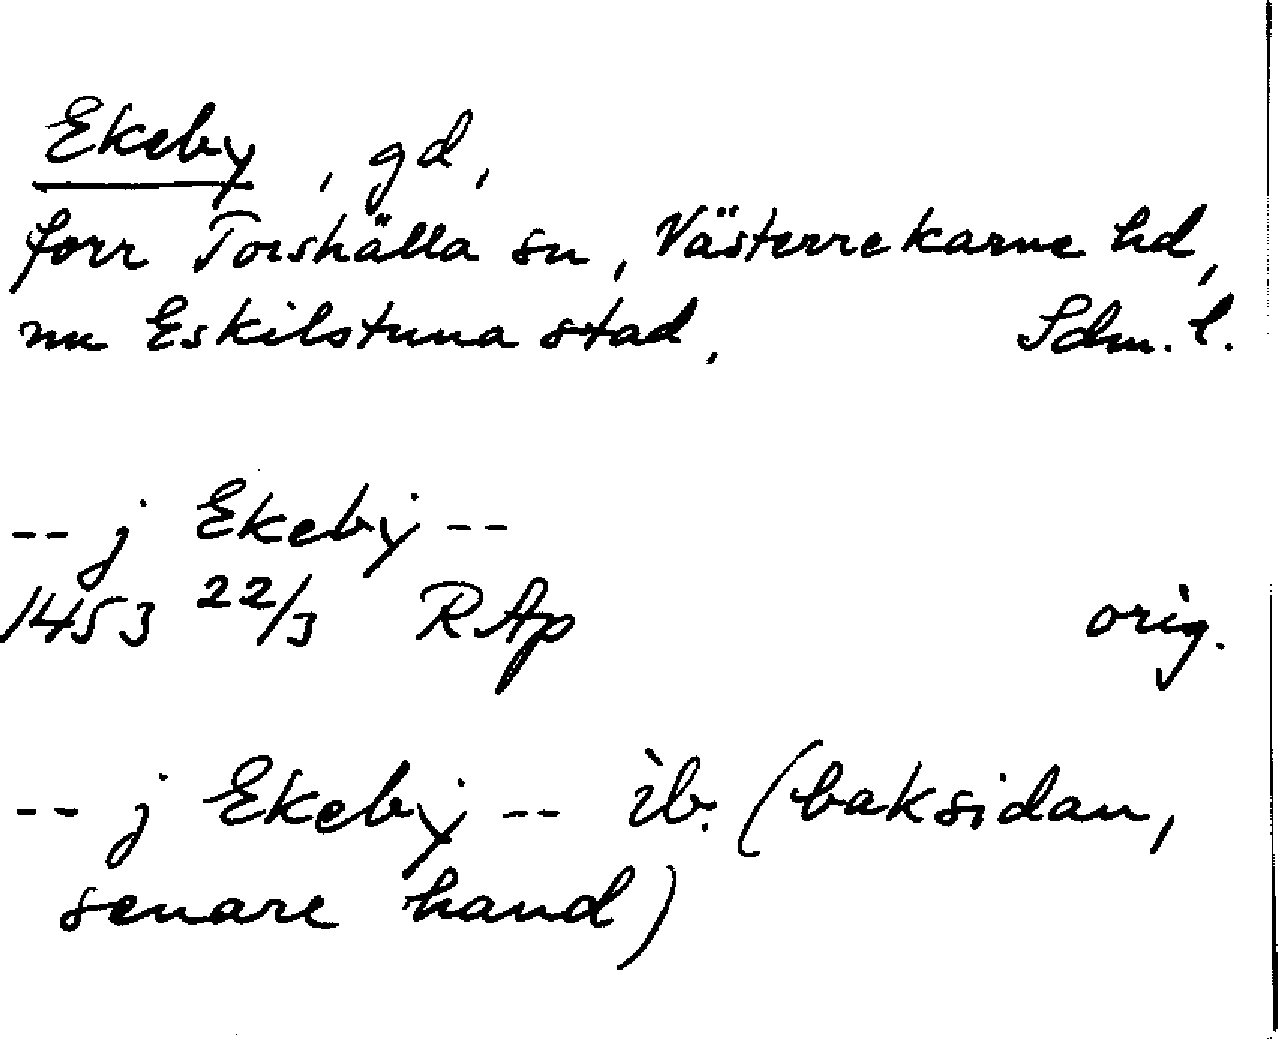 Ekeby, gd,
förr Torshälla sn, Västerrekarne hd,
nu Eskilstuna stad. Sdm. l.
-- j Ekeby --
1453 22/3 RAp orig.
-- j Ekeby -- ib. (baksidan,
senare hand)